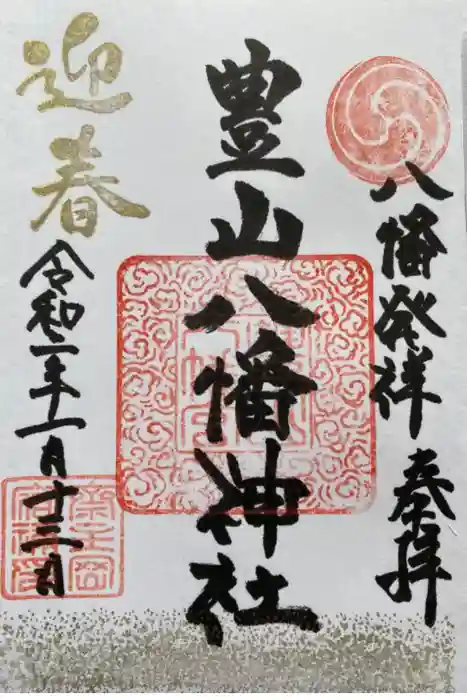 八幡発祥 奉拝
豊山八幡神社
迎春
令和二年十一月十三日